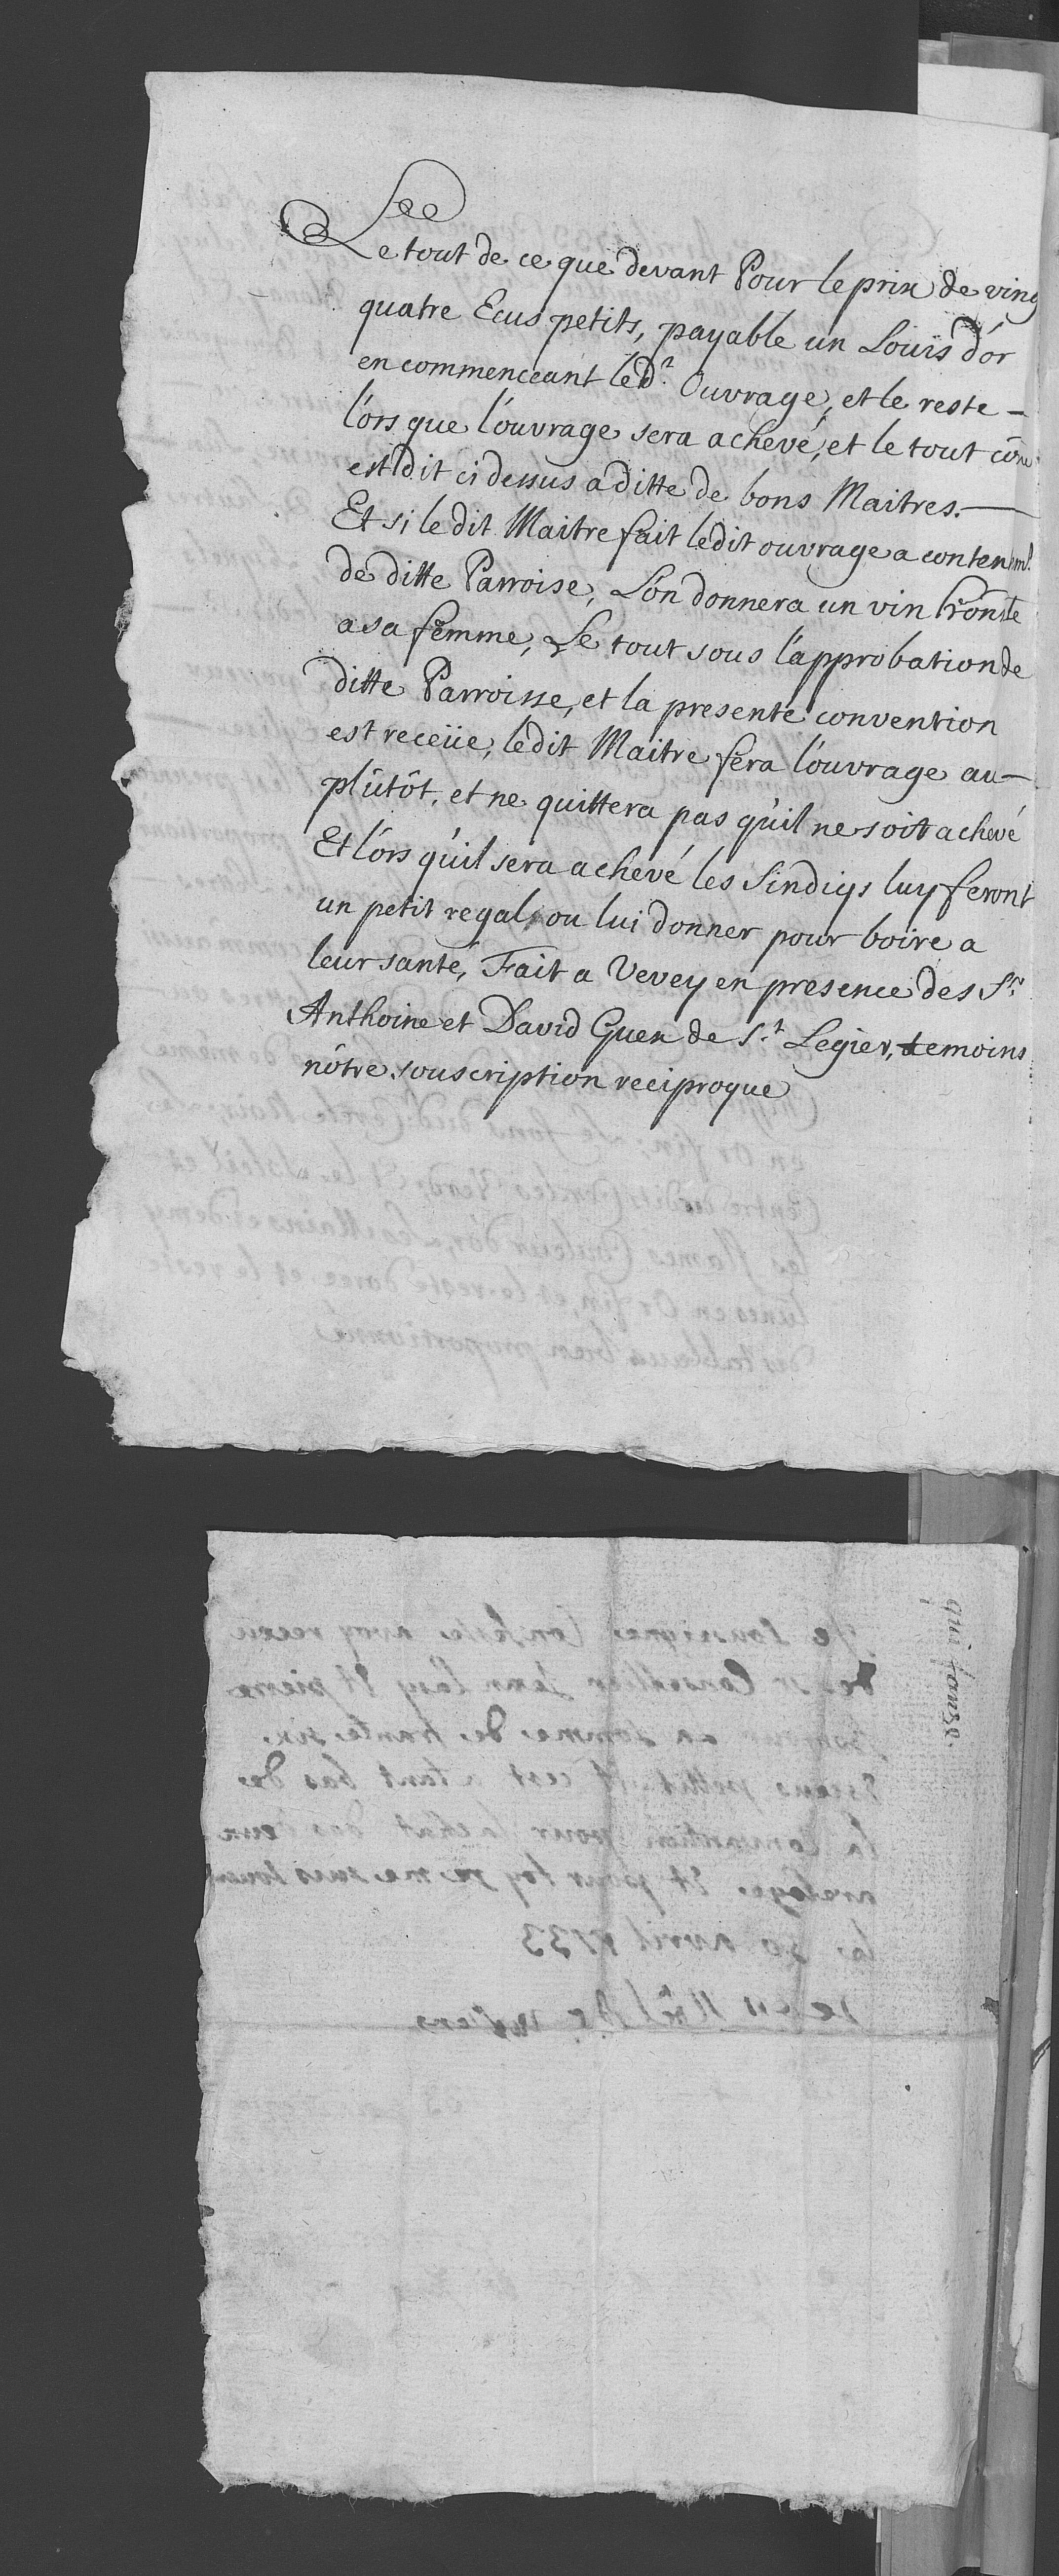 Le tout de ce que devant Pour le prix de ving
quatre Ecus petits, payable un Louïs d'or
en commenceant led.t Ouvrage, et le reste -
lors que l'ouvrage sera achevé, et le tout cõme
est dit ci dessus a ditte de bons Maitres. -
Et si le dit Maitre fait ledit ouvrage a contenm.t
de ditte Parroise, L'on donnera un vin honête
a sa femme, Le tout sous l'approbation de
ditte Parroisse, et la presente convention
est receüe, ledit Maitre fera l'ouvrage au-
plûtôt, et ne quittera pas qu'il ne soit achevé
Et lors qu'il sera achevé les Sindiqs luy feront
un petit regal, ou lui donner pour boire a
leur santé, Fait a Vevey en presence des S.rs
Anthoine et David Guex de S.t Legier, temoins
nôtre souscription reciproque
Je sousigne Confesse avoy receu
des sr Consellier Jean Louy Et pierre
la somme de trante six
Escus petit Et cest a tant bas de
la convantion pour lachat des deux
Et pour foy je me suis
le 30 avril 1733